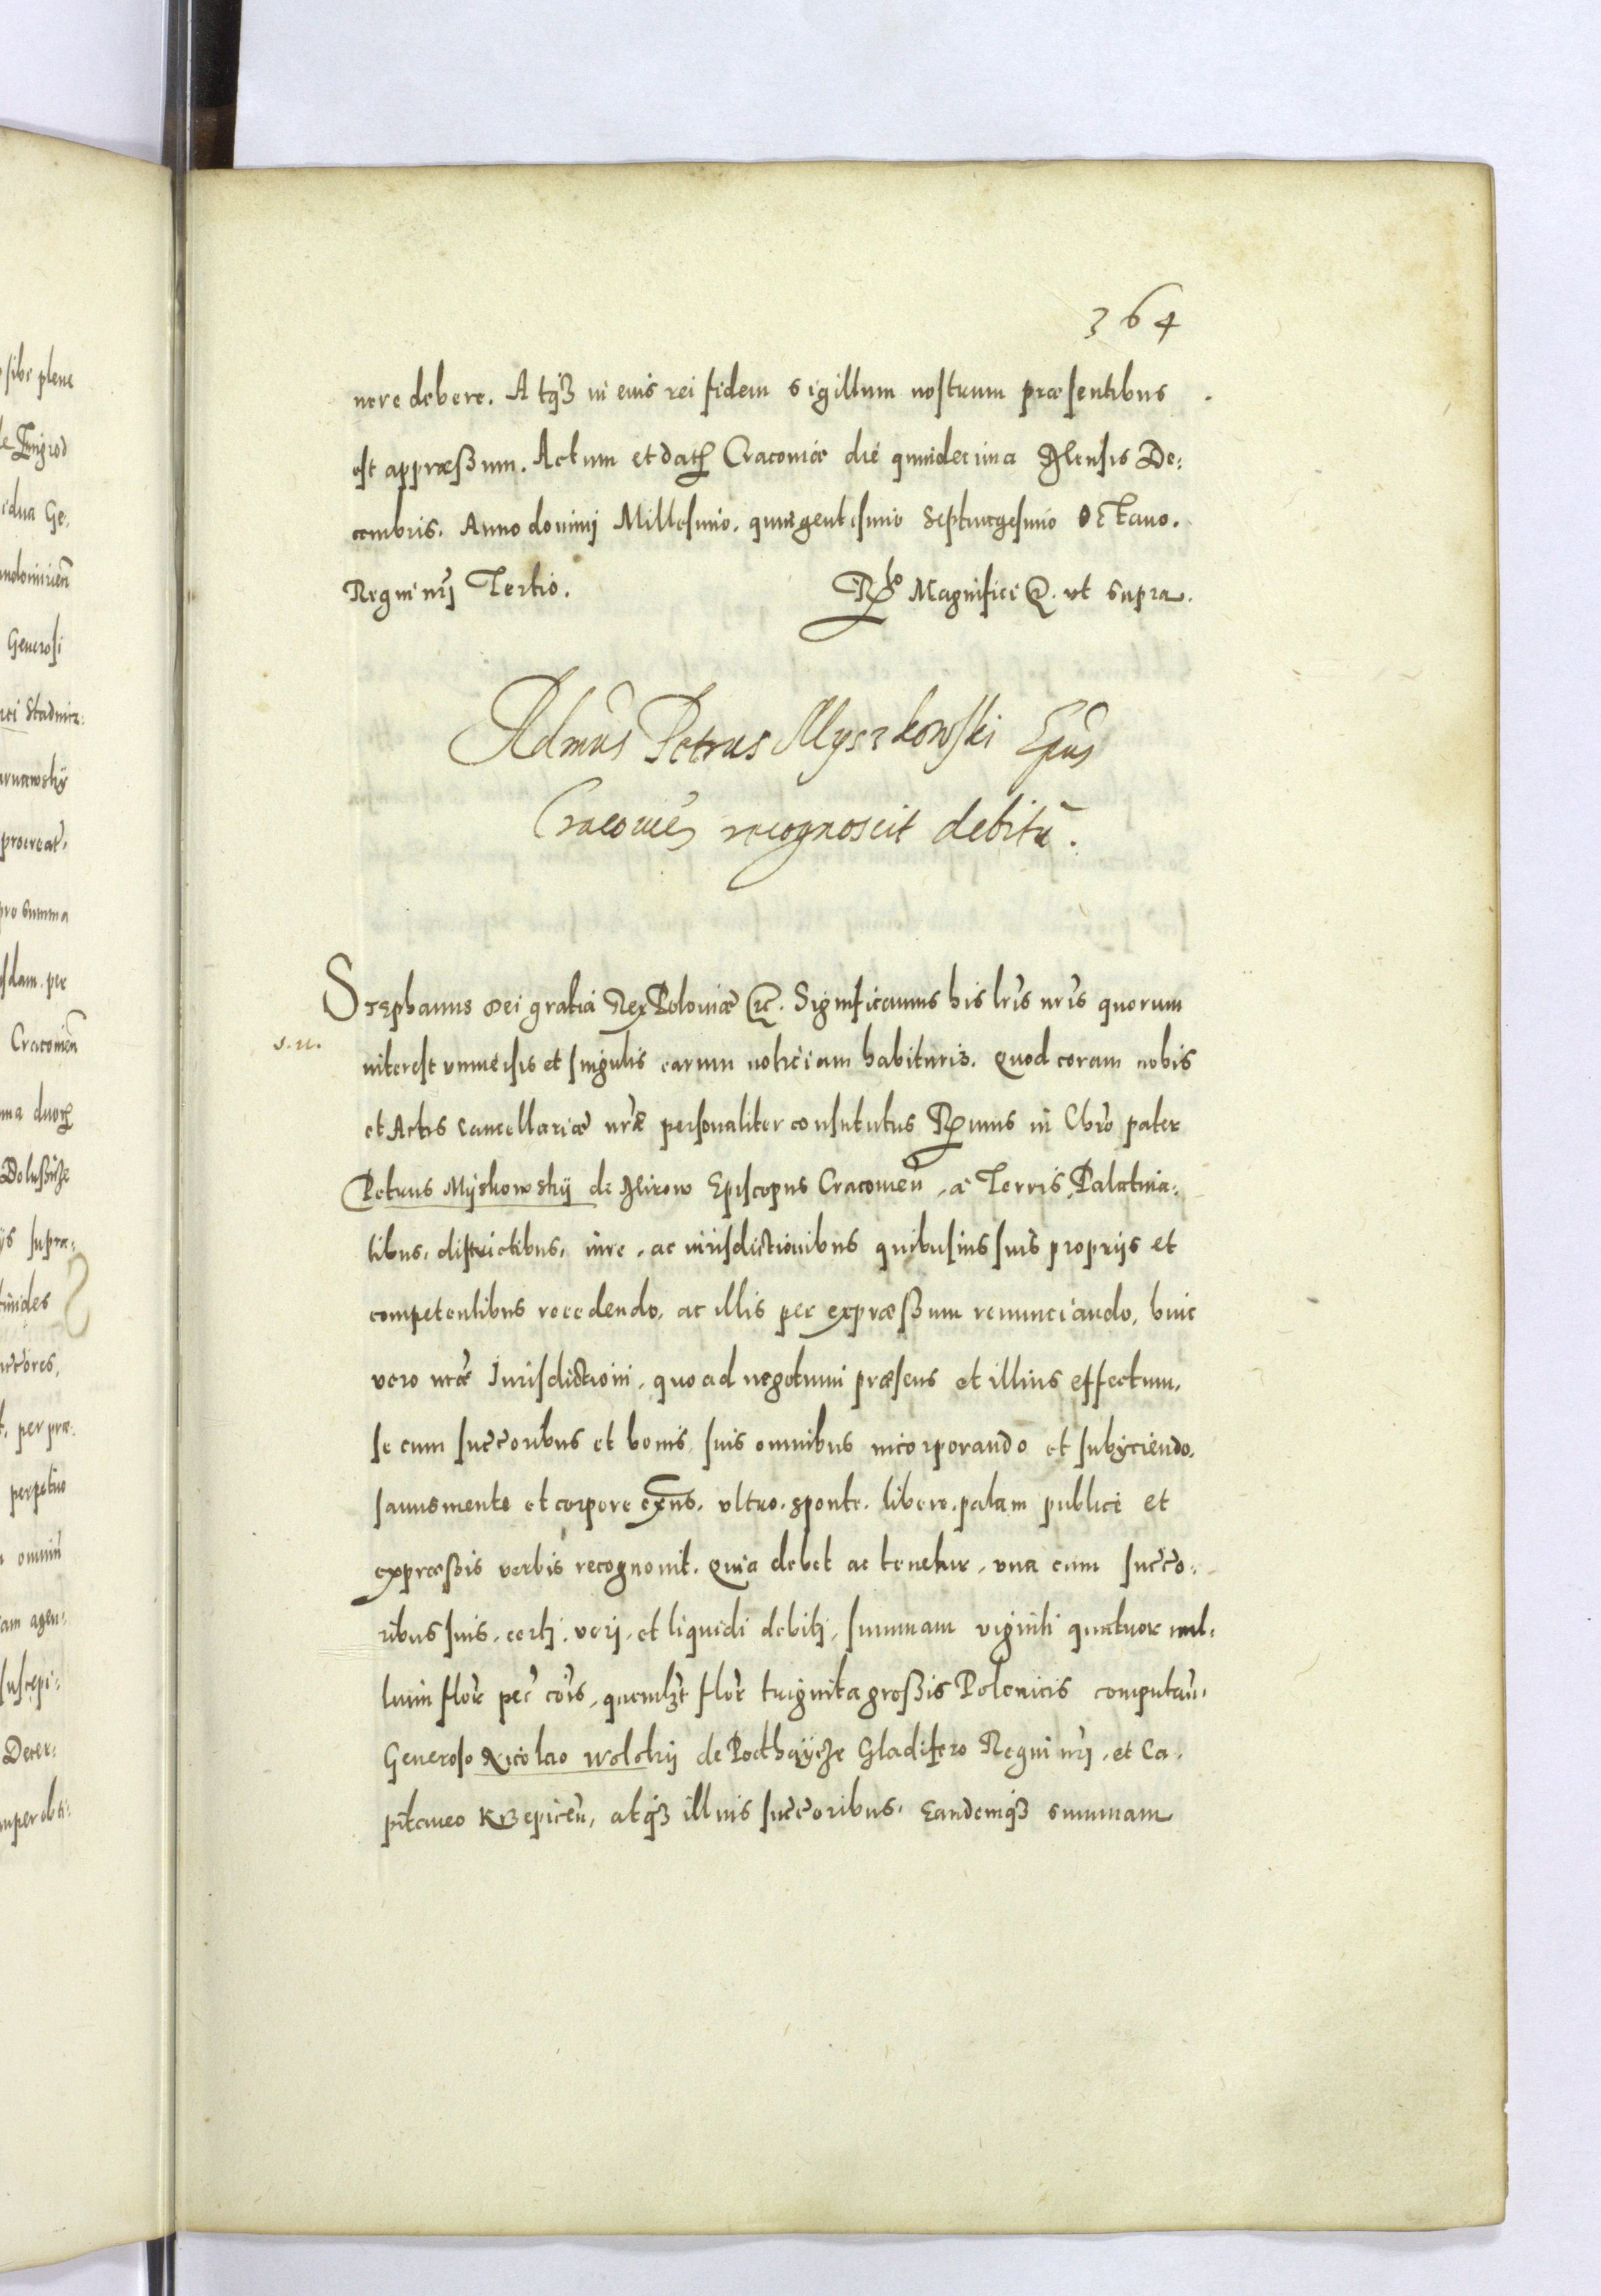 364
nere debere. Atq3 in eius rei fidem sigillum nostrum præsentibus
est appræßum. Actum et dat Cracoviæ die quindecima Mensis De:
cembris. Anno dominj Millesimo. quingentesimo Septuagesimo Octauo.
Regni nrj Tertio. Rlo Magnifici &c. vt supra.
Rdmus Petrus Myszkowski Epus
Cracouien recognoscit debitū.
Stephanus Dei gratia Rex Poloniæ &c. Significamus his lris nris quorum
s. u.
interest vniuersis et singulis earum noticiam habituris. Quod coram nobis
et Actis Cancellariæ nræ personaliter constitutus Rmus in Chro pater
Petrus Myskowskÿ de Mirow Episcopus Cracouien, a Terris, Palatina,
tibus, districtibus, iure, ac iurisdictionibus quibusuis suis proprijs et
competentibus recedendo, ac illis per expræßum renunciando, huic
vero nræ Jurisdictioni, quo ad negotium præsens et illius effectum,
se cum succoribus et bonis suis omnibus incorporando et subijciendo,
sanus mente et corpore exns, vltro, sponte, libere, palam publice et
expræßis verbis recognouit. Quia debet ac tenetur, vna cum succo:
ribus suis, certj, verj, et liquidi debitj, summam viginti quatuor mil,
lium flor pec cois, quemlzt flor triginta großis Polonicis computan,
Generoso Nicolao Wolskÿ de Podhaÿcze Gladifero Regni nrj, et Ca,
pitaneo Krzepicen, atq3 illius succoribus, Eandemq3 summam